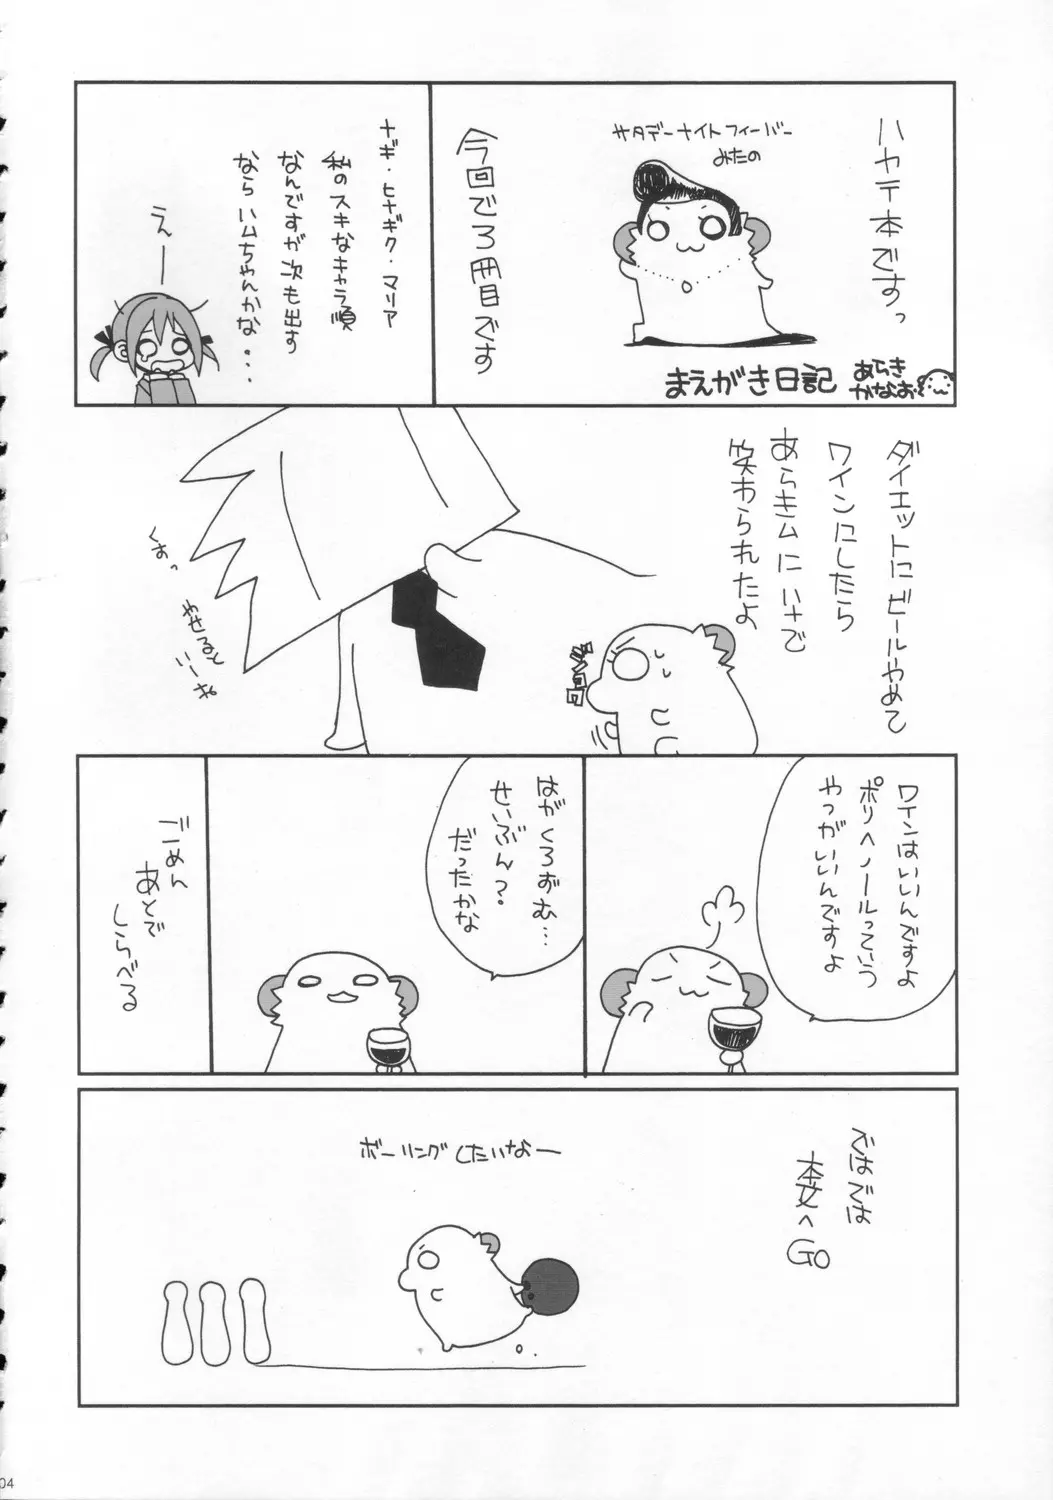 ハヤテ本ですっ
サタデーナイトフィーバー
みたの
今回で3冊目です
まえがき日記
あらき
かなお
ナギ・ヒナギク・マリア
私のスキなキャラ順
なんですが次も出す
なら ハムちゃんかな・・・
えー
ダイエットにビールやめて
ワインにしたら
あらきムにいサで
笑わられたよ
くすっ
やせると
いーね
ワインはいいんですよ
ポリヘノールっていう
やつがいいんですよ
はがくろずむ…
せいぶん?
だったかな
ごめん
あとで
しらべる
ではでは
本文へ
GO
ボーリングしたいなー
04